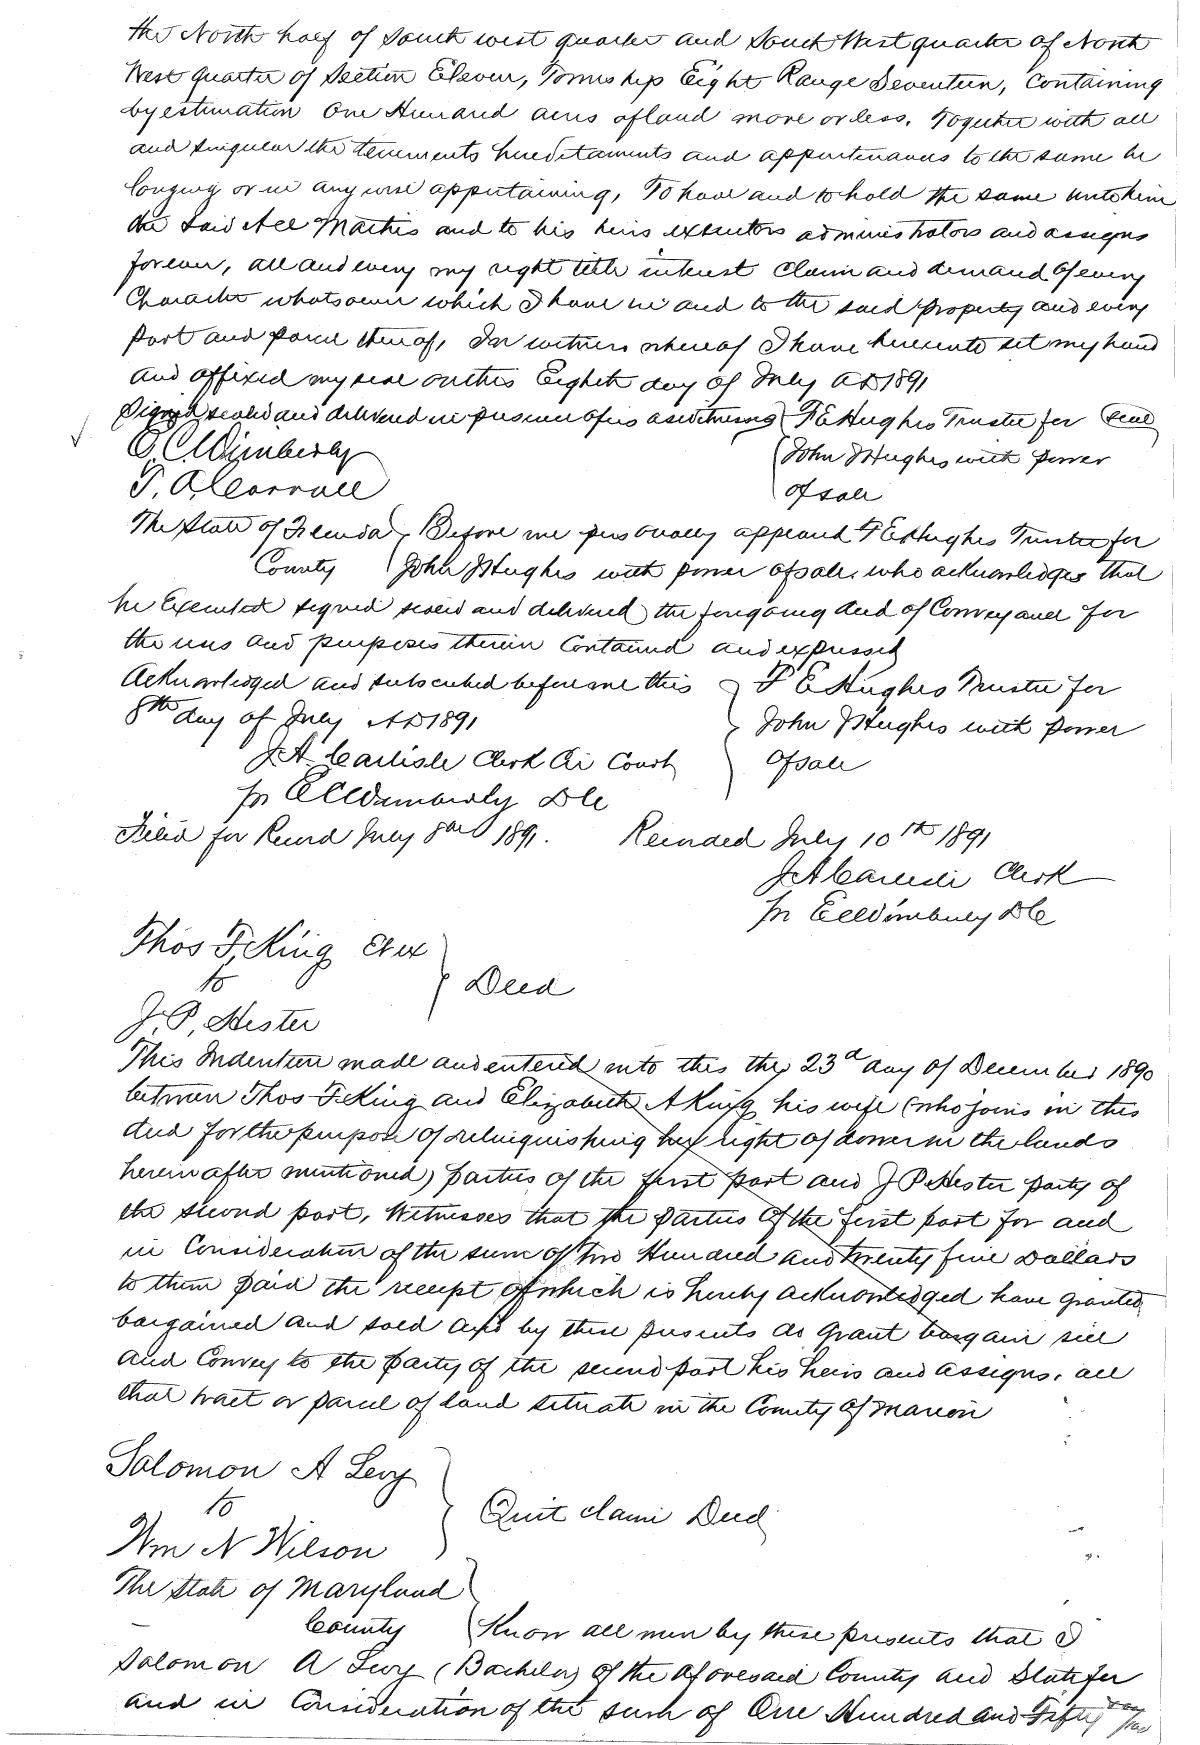 the North half of South west quarter and South West quarter of North
West quarter of Section Eleven, Township Eight Range Seventeen, Containing
by estimation One Hundred acres of land more or less. Together with all
and singular the tenements hereditaments and appurtenances to the same be
longing or in any wise appertaining, To have and to hold the same unto him
the said Ace Mathis and to his heirs executors administrators and assigns
forever, all and every my right title interest claim and demand of every
Character whatsoever which I have in and to the said property and every
part and parcel thereof, In witness whereof I have hereunto set my hand
and affixed my seal on this Eighth day of July AD 1891
Signed sealed and delivered in presence of us as witnesses F E Hughes Trustee for Seal
E. C. Wimberly John J Hughes with power
T. A. Carroll of sale
The State of Florida Before me personally appeared F E Hughes Trustee for
County John J Hughes with power of sale, who acknowledges that
he Executed signed sealed and delivered the foregoing deed of Conveyance for
the uses and purposes therein Contained and expressed
Acknowledged and subscribed before me this F E Hughes Trustee for
8th day of July AD 1891 John J Hughes with power
J A Carlisle Clerk Cir Court of sale
pr E C Wimberly D C
Filed for Record July 8th 1891. Recorded July 10th 1891
J A Carlisle Clerk
pr E C Wimberly D C
Thos F. King et ux
to Deed
J. P. Hester
This Indenture made and entered into this the 23d day of December 1890
between Thos F King and Elizabeth A King his wife (who joins in this
deed for the purpose of relinquishing her right of dower in the lands
herein after mentioned) parties of the first part and J P Hester party of
the second part, Witnesses that the parties of the first part for and
in Consideration of the sum of Two Hundred and twenty five Dollars
to them paid the receipt of which is hereby acknowledged have granted
bargained and sold and by these presents do grant bargain sell
and Convey to the party of the second part his heirs and assigns, all
that tract or parcel of land situate in the County of Marion
Salomon A Levy
to Quit claim Deed
Wm N Wilson
The State of Maryland
County Know all men by these presents that I
Salomon A Levy (Bachelor) of the aforesaid County and State for
and in Consideration of the sum of One Hundred and Fifty